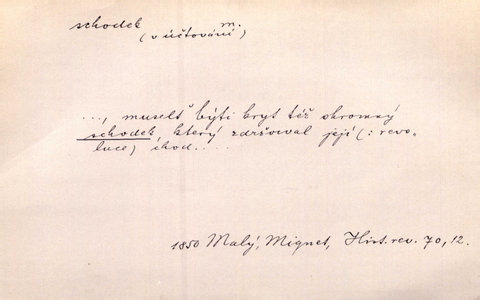 schodek m.
(v účtování)
..., muselť býti kryt též ohromný
schodek, který zdržoval její (: revo-
luce) chod....
1850 Malý, Mignet, Hist. rev. 70, 12.